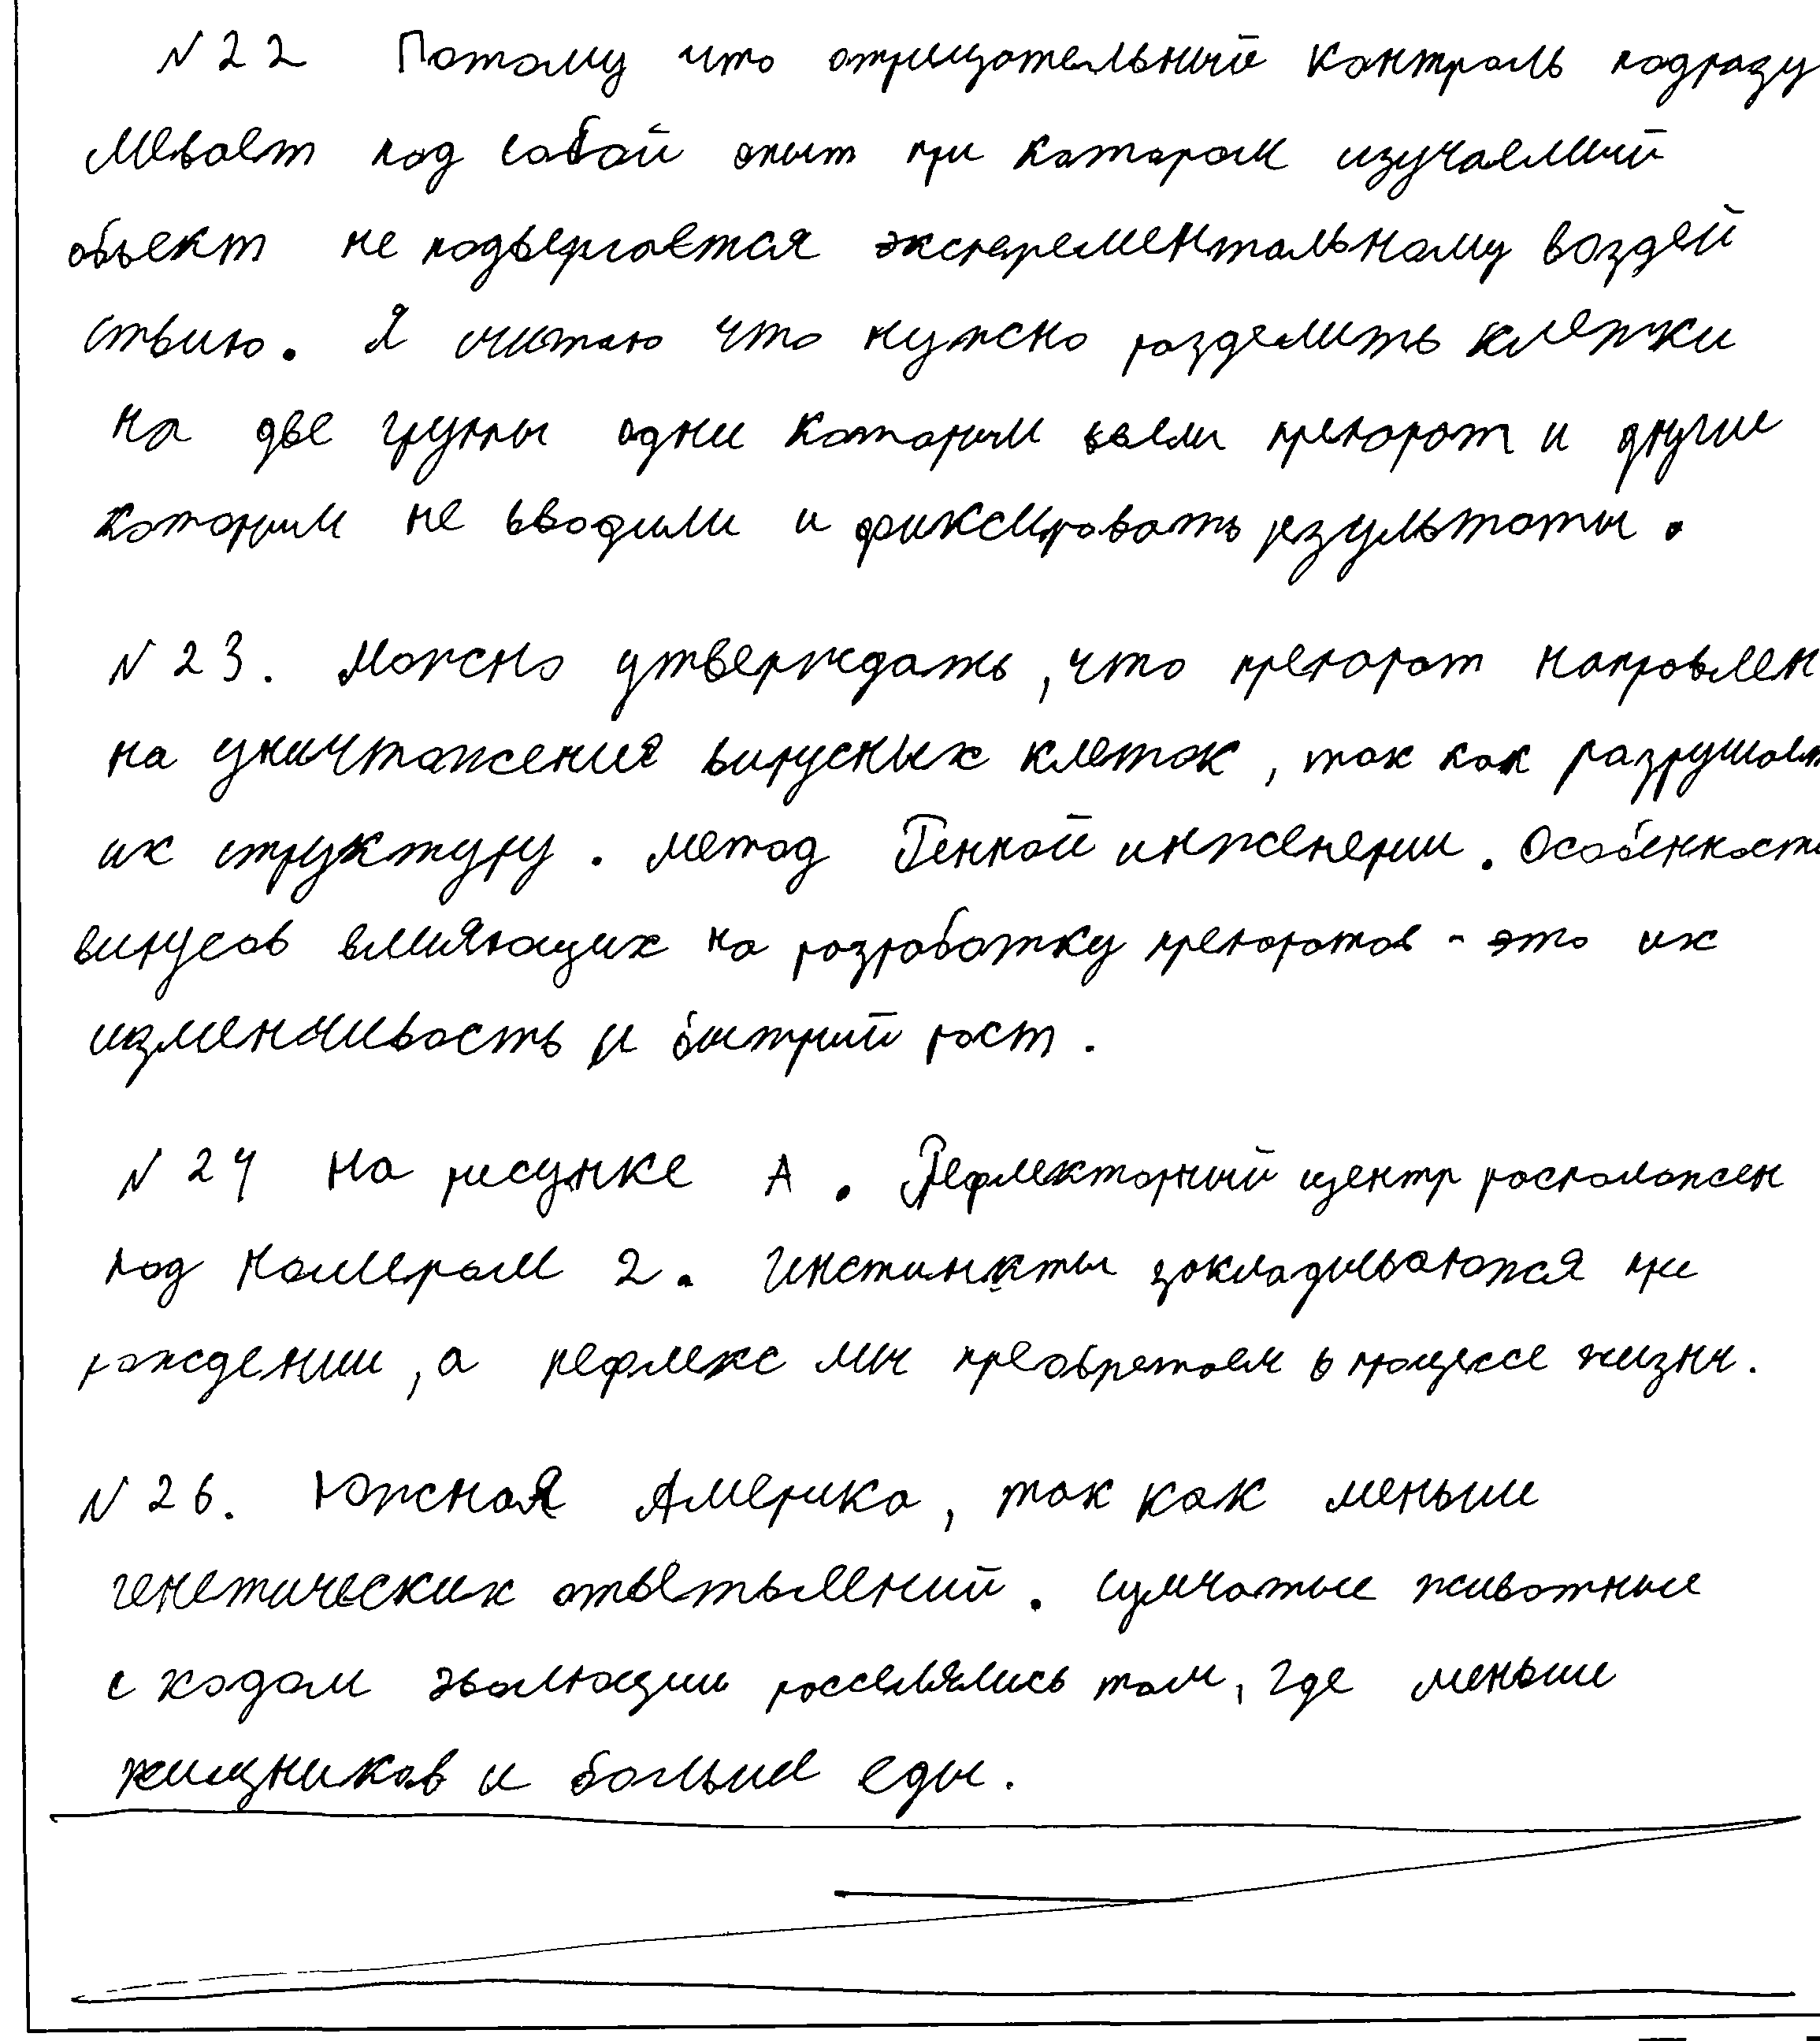 № 22 Потому что отрицательный контроль подразу
мевает под собой опыт при котором изучаемый
объект не подвергается эксперементальному воздей
ствию. Я считаю что нужно разделить клетки
на две группы одни которым ввели препарат и другие
которым не вводили и фиксировать результаты.
№ 23. Можно утверждать, что препарат направлен
на уничтожения вирусных клеток, так как разрушает
их структуру. метод Генной инженерии. Особенности
вирусов влияющих на разработку препаратов - это их
изменчивость и быстрый рост.
№ 24 На рисунке А. Рефлекторный центр расположен
под номером 2. Инстинкты закладываются при
рождении, а рефлекс мы преобретаем в процессе жизни.
№ 26. Южная Америка, так как меньше
генетических ответвлений. Сумчатые животные
с ходом эволюции расселялись там, где меньше
хищников и больше еды.